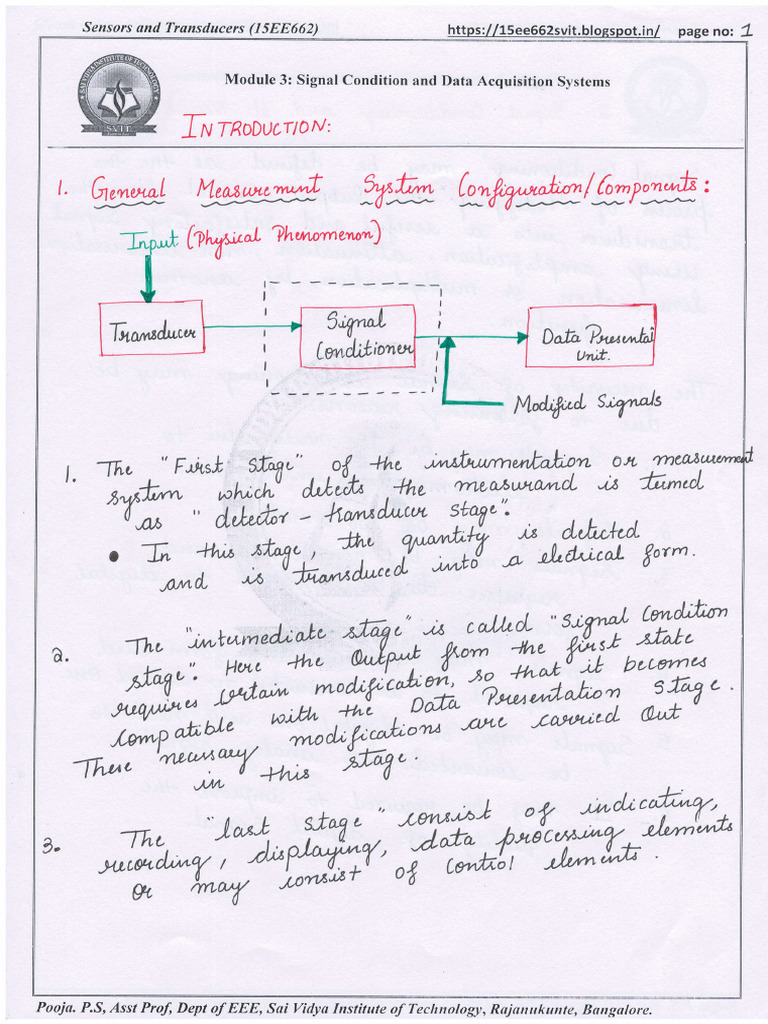 Sensors and Transducers (15EE662) https://15ee662svit.blogspot.in/ page no: 1
Module 3: Signal Condition and Data Acquisition Systems
SVIT
INTRODUCTION:
1. General Measurement System Configuration/Components:
Input (Physical Phenomenon)
Transducer
Signal Conditioner
Data Presentai Unit.
Modified Signals
1. The "First Stage" of the instrumentation or measurement
system which detects the measurand is turmed
as "detector - transducer stage".
• In this stage, the quantity is detected
and is transduced into a electrical form.
2. The "intermediate stage" is called "Signal Condition
stage". Here the Output from the first state
requires certain modification, so that it becomes
compatible with the Data Presentation Stage.
These necessary modifications are carried Out
in this stage.
3. The "last stage" consist of indicating,
recording, displaying, data processing elements
Or may consist of Control elements.
Pooja. P.S, Asst Prof, Dept of EEE, Sai Vidya Institute of Technology, Rajanukunte, Bangalore.